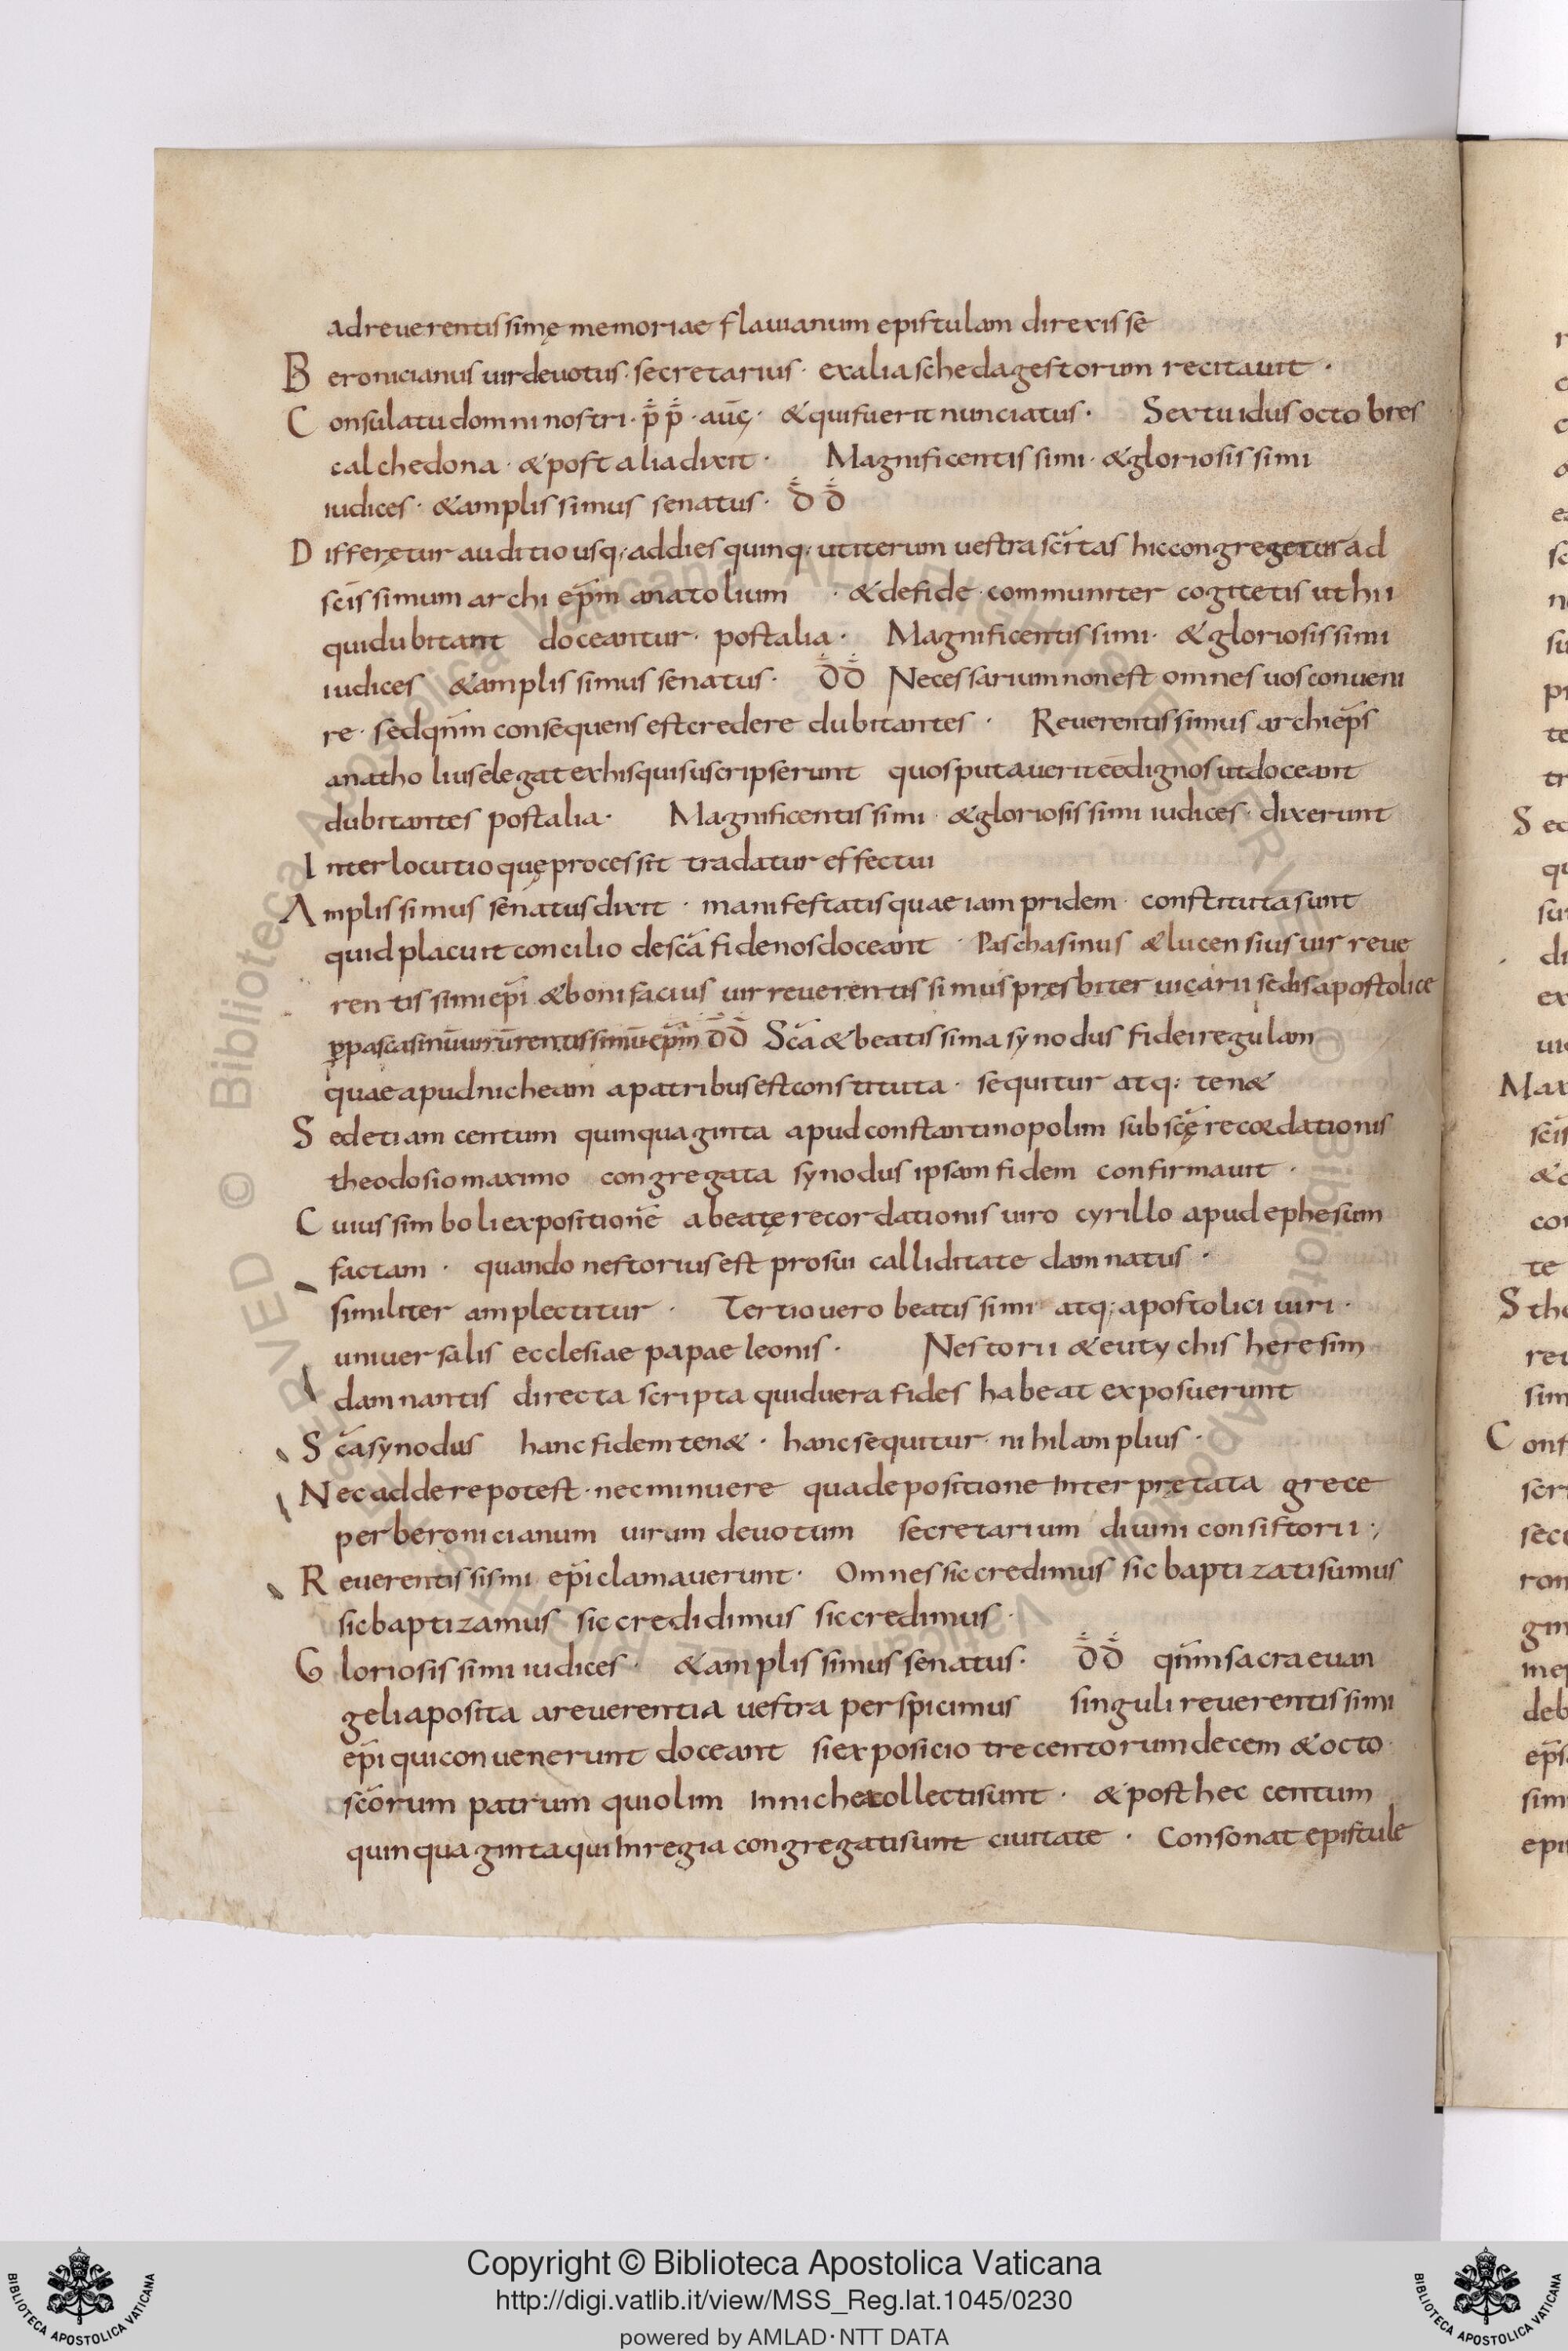 adreuerentissimę memoriae flauianum epistulam direxisse
Beronicianus uirdeuotus · secretarius · exaliaschedagestorum recitauit ·
Consulatu domni nostri · p̄p̄ · &quifuerit nunciatus · Sextu idus octobres
calchedona · &post aliadixit · Magnificentissimi · &gloriosissimi
iudices · &amplissimus senatus · D̄D̄
Differętur auditio usq; addies quinq; utiterum uestra sc̄itas hiccongregetur ad
sc̄issimum archi ep̄m anatolium · &defide communiter cogitetis ut hii
quidubitant doceantur · postalia · Magnificentissimi · &gloriosissimi
iudices &amplissimus senatus · D̄D̄ Necessariumnonest omnes uosconueni
re · sedqn̄m consequens estcredere dubitantes · Reuerentissimus archiep̄s
anatholiuselegatexhisquisuscripserunt quosputaueriteēdignosutdoceant
dubitantes postalia · Magnificentissimi · &gloriosissimi iudices · dixerunt
Interlocutio quęprocessit tradatur effectui
Amplissimus senatusdixit · manifestatisquae iam pridem constitutasunt
quid placuit concilio desc̄a fidenosdoceant · Paschasinus &lucensius uir reue
rentissimiep̄i &bonifacius uir reuerentissimus pręsbiter uicarii sedisapostolice
D̄D̄ Sc̄a &beatissima synodus fidei regulam
quaeapudnicheam apatribusestconstituta · sequitur atq; ten&
Sedetiam centum quinquaginta apudconstantinopolim sub sc̄ę recordationis
theodosiomaximo congregata synodus ipsam fidem confirmauit ·
Cuius simboliexpositionē abeatęrecordationis uiro cyrillo apud ephesum
factam · quando nestoriusest prosui calliditate damnatus ·
similiter amplectitur · Tertiouero beatissimi atq; apostolici uiri ·
uniuersalis ecclesiae papae leonis · Nestorii &eutychis heresim
damnantis directa scripta quiduera fides habeat exposuerunt
Sc̄asynodus hancfidemten& · hancsequitur · nihilamplius ·
Necadderepotest · necminuere quadepositione Interprętata grece
perberonicianum uirum deuotum secretarium diuini consistorii ;
Reuerentissismi ep̄iclamauerunt · Omnes siccredimus sic baptizatisumus
sicbaptizamus siccredidimus siccredimus ·
Gloriosissimi iudices · &amplissimus senatus · D̄D̄ qn̄msacra euan
geliaposita areuerentia uestra perspicimus singuli reuerentissimi
ep̄i quiconuenerunt doceant siexposicio trecentorumdecem &octo
sc̄orum patrum quiolim Innicheacollectisunt · &posthec centum
quinquagintaquiInregia congregatisunt ciuitate · Consonat epistule
Copyright © Biblioteca Apostolica Vaticana
http://digi.vatlib.it/view/MSS_Reg.lat.1045/0230
powered by AMLAD · NTT DATA
BIBLIOTECA APOSTOLICA VATICANA
BIBLIOTECA APOSTOLICA VATICANA